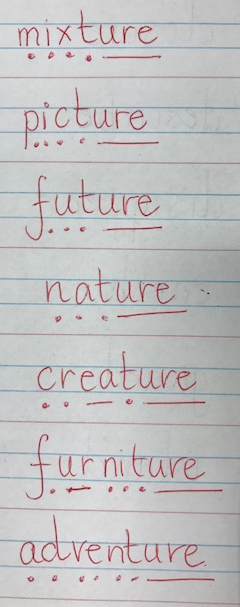 mixture
picture
future
nature
creature
furniture
adventure